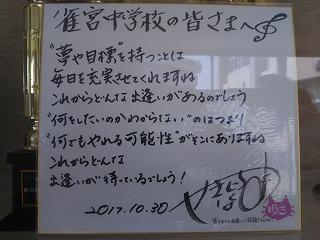 雀宮中学校の皆さまへ
"夢や目標"を持つことは
毎日を充実させてくれますね
これからどんな出逢いがあるのでしょう
"何をしたいのかわからない"のはつまり
"何でもやれる可能性"がそこにありますね
これからどんな
出逢いが待っているでしょう！
2017.10.30
ゆき